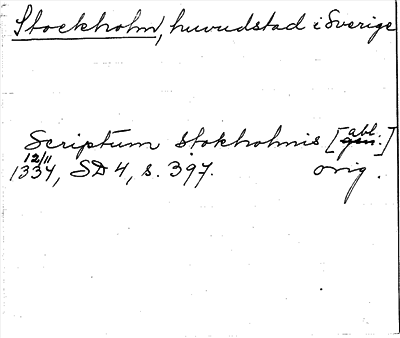 Stockholm, huvudstad i Sverige
Scriptum Stokholmis [gen. abl.]
12/11
1334, SD 4, s. 397. orig.